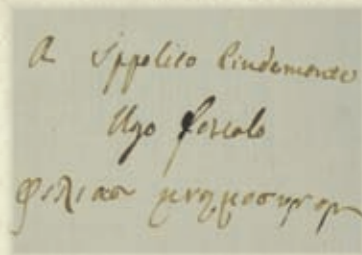 A Ippolito Pindemonte
Ugo Foscolo
φιλιασ μνημοσυνον